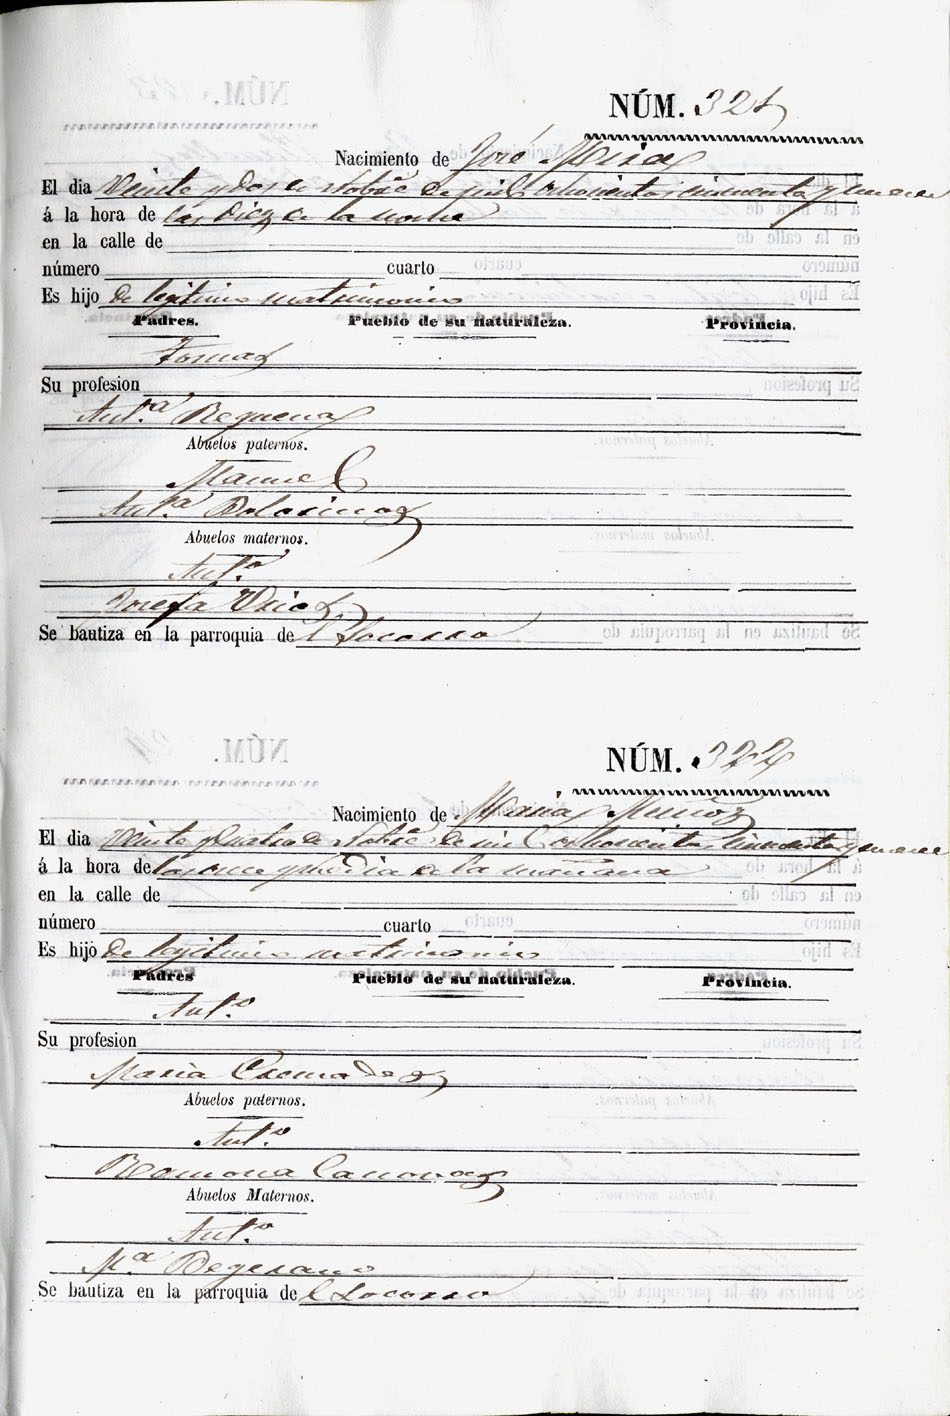 NÚM. 321
Nacimiento de José Mira
El dia Veinte y dos de Nobre. de mil ochocientos cincuenta y nueve
á la hora de las diez de la noche
en la calle de
número cuarto
Es hijo de legitimo matrimonio
Padres. Pueblo de su naturaleza. Provincia.
Tomas
Su profesion
Ant.a Requena
Abuelos paternos.
Manuel
Ant.a
Abuelos maternos.
Ant.o
Josefa
Se bautiza en la parroquia de l Socorro
NÚM. 322
Nacimiento de Maria Muñoz
El dia Veinte y cuatro de Nobre. de mil ochocientos cincuenta y nueve
á la hora de las once y media de la mañana
en la calle de
número cuarto
Es hijo de legitimo matrimonio
Padres Pueblo de su naturaleza. Provincia.
Ant.o
Su profesion
Maria Cremades
Abuelos paternos.
Ant.o
Ramona Canovas
Abuelos Maternos.
Ant.o
M.a Begerano
Se bautiza en la parroquia de l Socorro